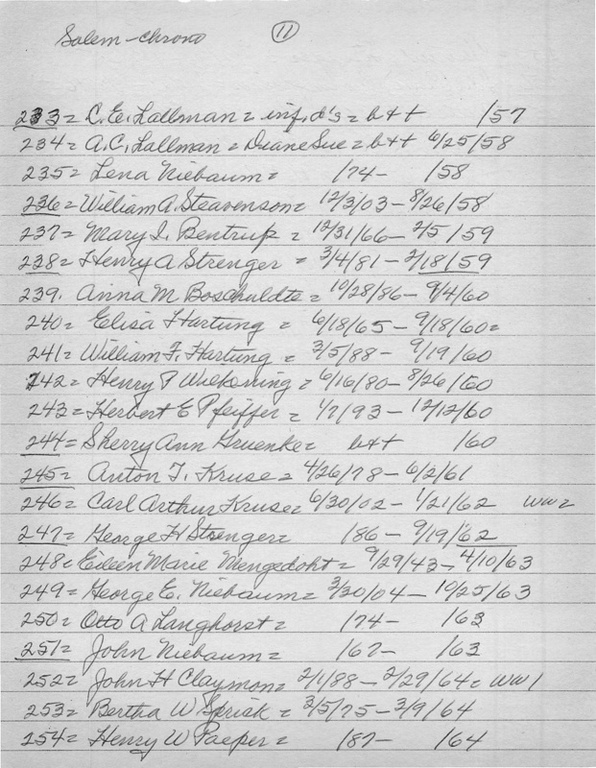 Salem - chrono 11
233 = C.E. Lallman = inf. d's = b++ /57
234 = A.C. Lallman = Duane Sue = b++ 6/25/58
235 = Lena Niebaum = /74 - /58
236 = William A. Steavenson = 12/3/03 - 8/26/58
237 = Mary I. Bentrup = 12/31/66 - 2/5/59
238 = Henry A Strenger = 3/4/81 - 2/18/59
239. Anna M Boschuldte = 10/28/86 - 9/4/60
240 = Elisa Hartung = 6/18/65 - 9/18/60 =
241 = William F. Hartung = 3/5/88 - 9/19/60
242 = Henry P Wiekening = 6/16/80 - 8/26/60
243 = Herbert E Pfeiffer = 1/7/93 - 12/12/60
244 = Sherry Ann Gruenke = b++ /60
245 = Anton F. Kruse = 4/26/78 - 6/2/61
246 = Carl Arthur Kruse = 6/30/02 - 1/21/62 WW2
247 = George H Strenger = 186 - 9/19/62
248 = Eileen Marie Mengedoht = 9/29/43 - 4/10/63
249 = George E. Niebaum = 3/20/04 - 10/25/63
250 = Otto A Langhorst = /74 - /63
251 = John Niebaum = /67 - /63
252 = John H Claymon = 2/1/88 - 2/29/64 = WW1
253 = Bertha W Sprick = 3/5/75 - 3/9/64
254 = Henry W Paeper = 187 - /64